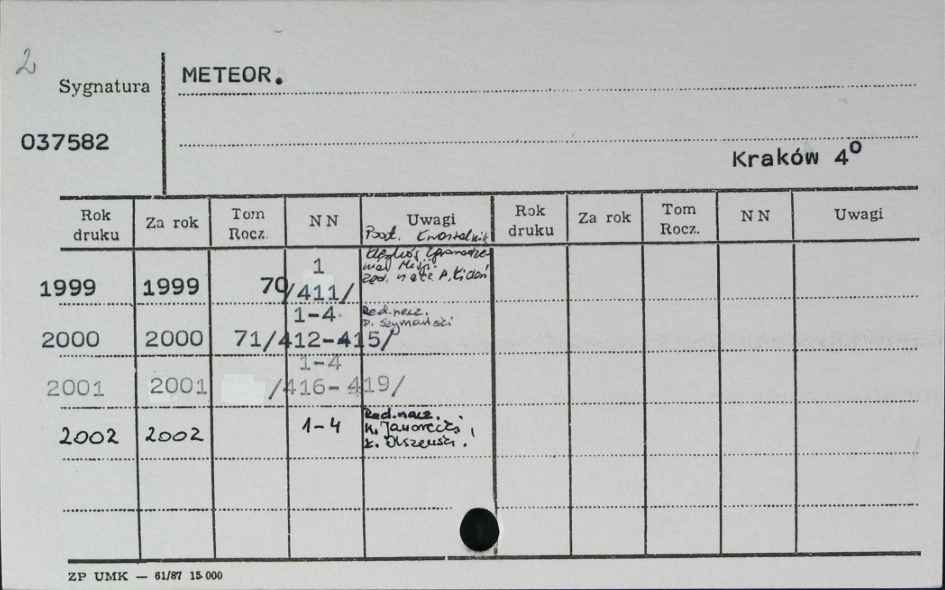 2
Sygnatura
METEOR.
037582
Kraków 4º
Rok druku Za rok Tom Rocz. NN Uwagi Rok druku Za rok Tom Rocz. NN Uwagi
Pod. Kwartalnik
1999 1999 70 1 /411/
Red. nacz.
2000 2000 71 1-4 /412-415/
D. Szymański
2001 2001 1-4 /416-419/
2002 2002 1-4 Red. nacz.
K. Jaworecki,
Ł. Olszewski.
ZP UMK — 61/87 15 000